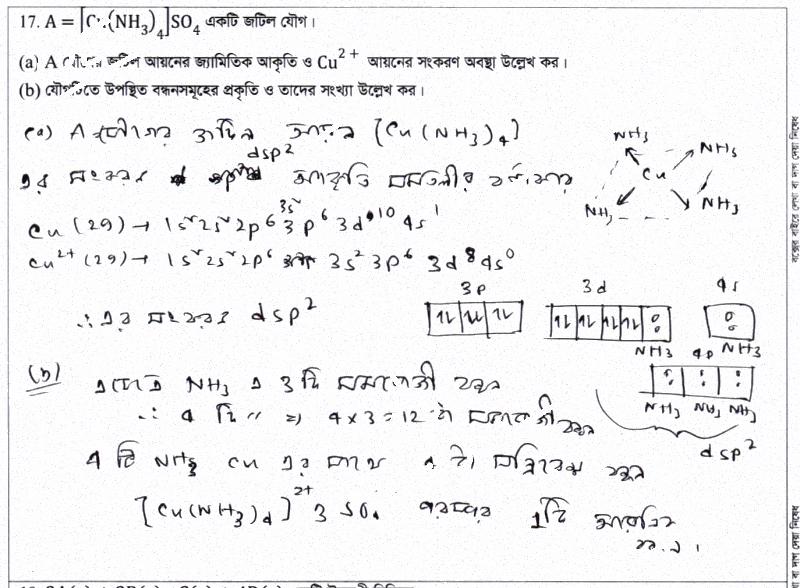 17. A = [Cu(NH₃)₄]SO₄ একটি জটিল যৌগ।
(a) A যৌগের জটিল আয়নের জ্যামিতিক আকৃতি ও Cu²⁺ আয়নের সংকরণ অবস্থা উল্লেখ কর।
(b) যৌগটিতে উপস্থিত বন্ধনসমূহের প্রকৃতি ও তাদের সংখ্যা উল্লেখ কর।
(a) A যৌগের জটিল আয়ন [Cu(NH₃)₄]
এর সংকরণ dsp² আকৃতি সমতলীয় বর্গাকার
NH₃ NH₃
Cu
NH₃ NH₃
Cu (29) → 1s² 2s² 2p⁶ 3s² 3p⁶ 3d¹⁰ 4s¹
Cu²⁺ (29) → 1s² 2s² 2p⁶ 3s² 3p⁶ 3d⁸ 4s⁰
∴ এর সংকরণ dsp²
3p 3d 4s
NH₃ 4p NH₃
NH₃ NH₃ NH₃
dsp²
(b) এখানে NH₃ এ 3 টি সমযোজী বন্ধন
∴ 4 টি " ⇒ 4 × 3 = 12 টা সমযোজী বন্ধন
4 টি NH₃ Cu এর সাথে 4 টা সন্নিবেশ বন্ধন
[Cu(NH₃)₄]²⁺ ও SO₄ পরস্পর 1টি আয়নিক